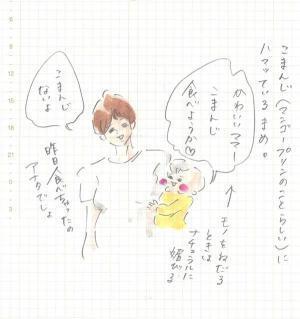 こまんじ（マンゴープリンのことらしい）に
ハマッている まめ。
かわいいママー
こまんじ
食べようか♡
↑
モノをねだる
ときは
ナチュラルに
媚びる
こまんじ
ないよ
昨日食べちゃったの
アナタでしょ